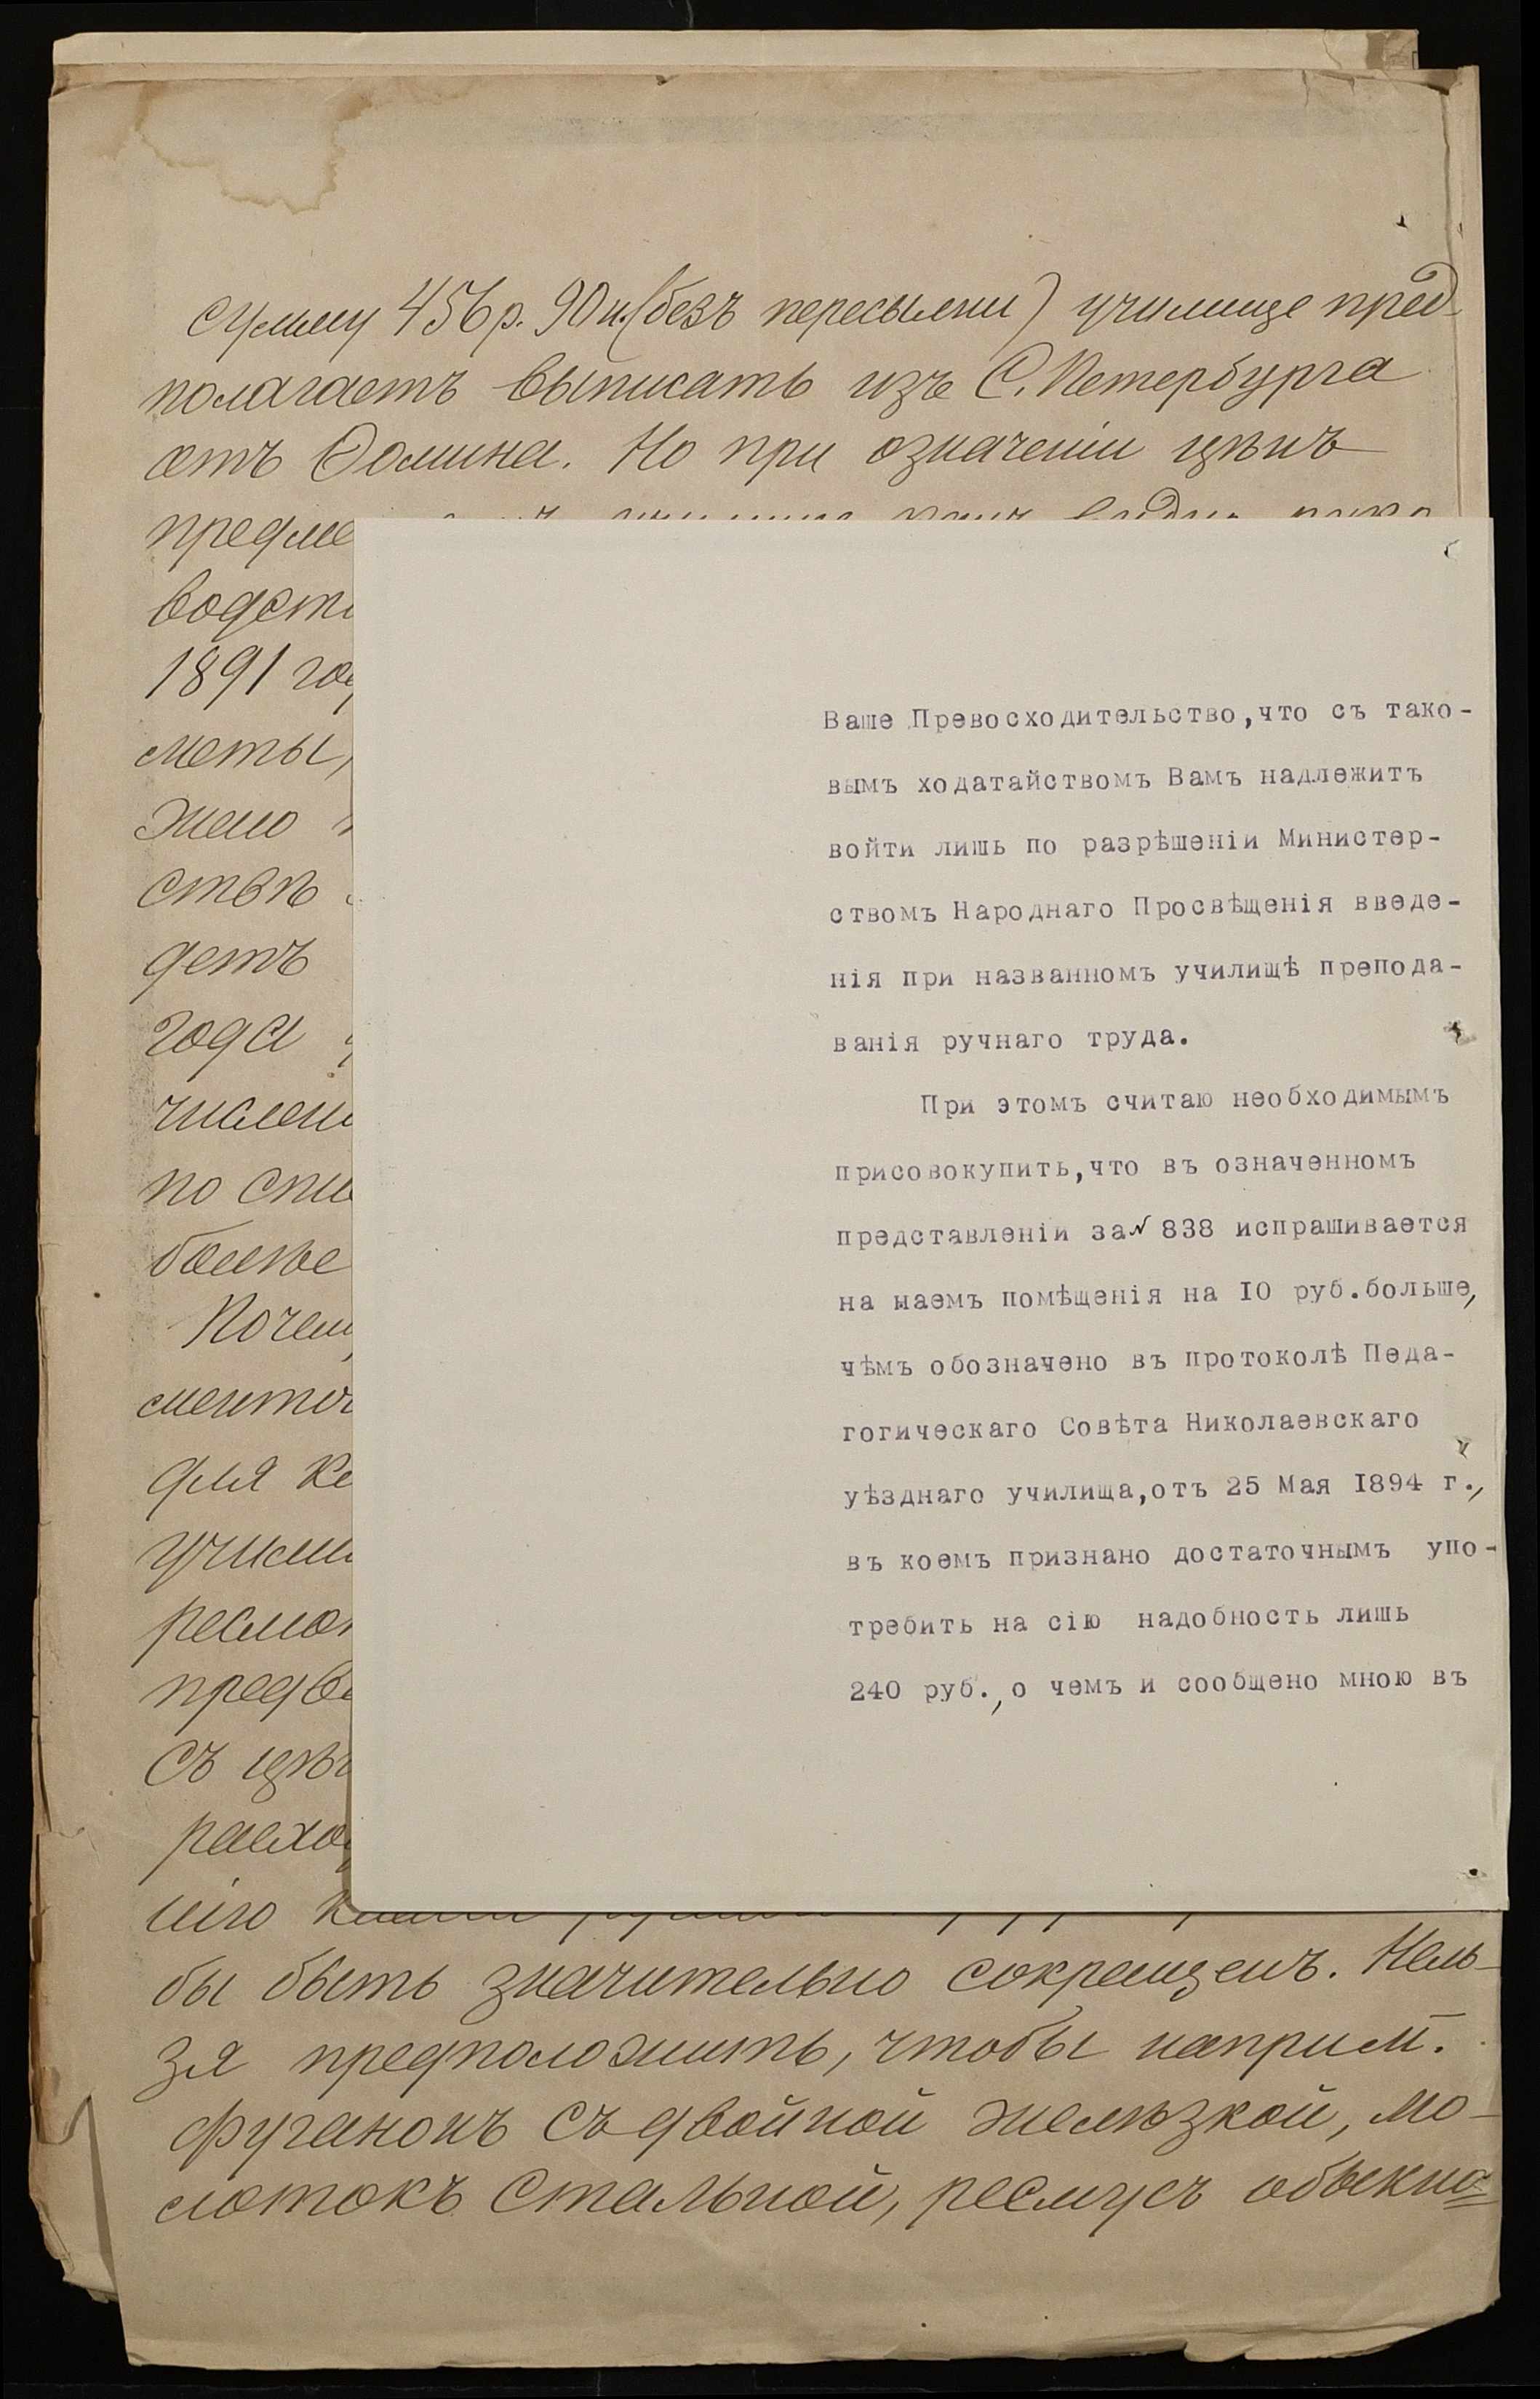 сумму 456 р. 90 к. (безъ пересылки) училище пред-
полагаетъ выписать изъ С. Петербурга
отъ Фомина. Но при означеніи цѣнъ
предме
водст
1891 го
меты,
жено
ствѣ
детъ
года
числен
по спи
болѣе
Почем
смѣт
для
учили
ресмо
предв
съ цѣ
расхо
ніго
бы быть значительно сокращенъ. Нель-
зя предположить, чтобы наприм.
фуганокъ съ двойной желѣзкой, мо-
лотокъ стальной, ресмусъ обыкно=
Ваше Превосходительство,что съ тако-
вымъ ходатайствомъ Вамъ надлежитъ
войти лишь по разрѣшеніи Министер-
ствомъ Народнаго Просвѣщенія введе-
нія при названномъ училищѣ препода-
ванія ручнаго труда.
При этомъ считаю необходимымъ
присовокупить,что въ означенномъ
представленіи за № 838 испрашивается
на наемъ помѣщенія на I0 руб.больше,
чѣмъ обозначено въ протоколѣ Педа-
гогическаго Совѣта Николаевскаго
уѣзднаго училища,отъ 25 Мая I894 г.,
въ коемъ признано достаточнымъ упо-
требить на сію надобность лишь
240 руб., о чемъ и сообщено мною въ